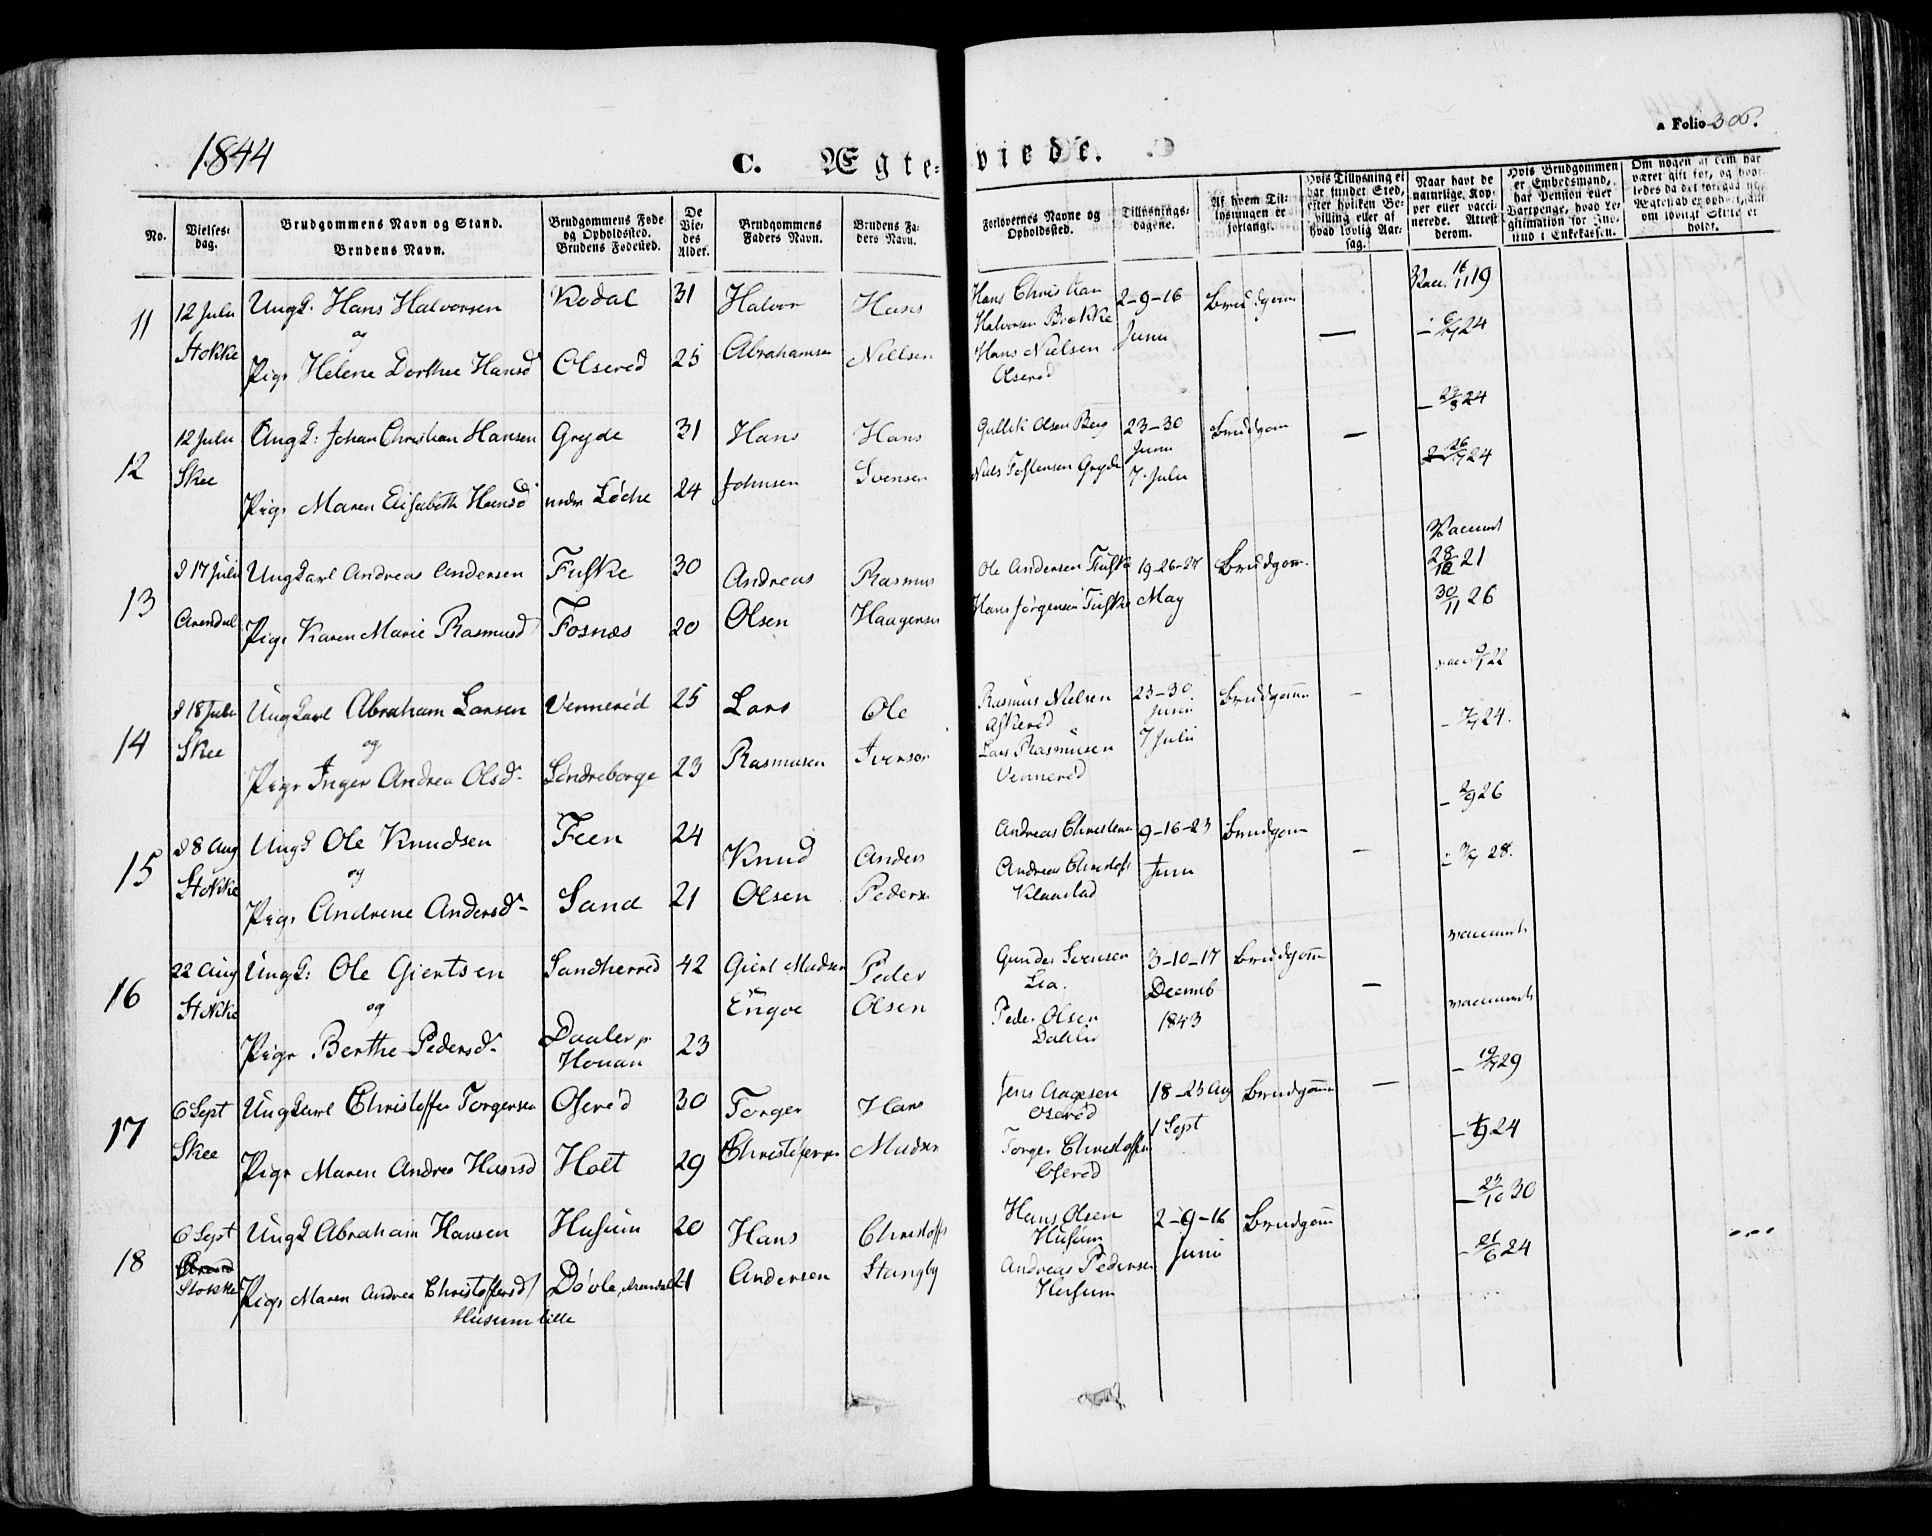 1844
C. Ægte-
viede.
Folio 306.
No.
Vielses-
dag.
Brudgommens Navn og Stand.
Brudens Navn.
Brudgommens Føde
og Opholdssted.
Brudens Fødested.
De
Vie-
des
Alder.
Brudgommens
Faders Navn.
Brudens Fa-
ders Navn.
Forlovernes Navne og
Opholdssted.
Tillysnings-
dagene.
Af hvem Til-
lysningen er
forlangt.
Hvis Tillysning ei
har fundet Sted,
efter hvilken Be-
villing eller af
hvad lovlig Aar-
sag.
Naar havt de
naturlige Kop-
per eller vacci-
nerede. Attest
derom.
Hvis Brudgommen
er Embedsmand,
har Pension eller
Vartpenge, hvad Le-
gitimation for Ind-
skud i Enkekassen.
Om nogen af dem har
været gift før, og hvor-
ledes da det forrige
Ægteskab er ophørt, samt
om lovligt Skifte er
holdt.
11
12 Juli
Stokke
Ungk. Hans Halvorsen
og
Pige Helene Dorthee Hansd
Kodal
Olserød
31
25
Halvor
Abrahamsen
Hans
Nielsen
Hans Christian
Halvorsen Brække
Hans Nielsen
Olserød
2-9-16
Juni
Brudgom
—
Vacc. 16/11 19
24
12
12 Juli
Skee
Ungk: Johan Christian Hansen
Pige Maren Elisabeth Hansd
Gryde
nedre Løche
31
24
Hans
Johnsen
Hans
Svensen
Gullik Olsen Berg
Niels Tostensen Gryde
23-30
Juni
7. Juli
Brudgom
—
24
24
13
d 17 Juli
Arendal
Ungkarl Andreas Andersen
Pige Karen Marie Rasmusd
Fuske
Fosnæs
30
20
Andreas
Olsen
Rasmus
Haagensen
Ole Andersen Fuske
Hans Jørgensen Fuske
19-26-27
May
Brudgom
28/12 21
30/11 26
14
d 18 Juli
Skee
Ungkarl Abraham Larsen
og
Pige Inger Andrea Olsd
Vennerød
Søndreborge
25
23
Lars
Rasmusen
Ole
Iversen
Rasmus Nielsen
Askerød
Lars Rasmusen
Vennerød
23-30.
Juni
7 Juli
Brudgom
22
24.
15
d 8 Aug
Stokke
Ungk Ole Knudsen
og
Pige Andrene Andersd
Feen
Sand
24
21
Knud
Olsen
Anders
Pedersen
Andreas Christensen
Andreas Christofs
Klaastad
9-16-23
Juni
Brudgom
—
26
28.
16
22 Aug
Stokke
Ungk: Ole Giertsen
og
Pige Berthe Pedersd
Sandherred
Daaler p.
Houan
42
23
Giert Madsen
Engve
Peder
Olsen
Gunder Svensen
Lia.
Peder Olsen
Dahler
3-10-17
Decemb
1843
Brudgom
—
17
6 Sept
Skee
Ungkarl Christoffer Torgersen
Pige Maren Andrea Hansd
Oserød
Holt
30
29
Torger
Christofersen
Hans
Madsen
Jens Aagesen
Oserød
Torger Christoffers
Oserød
18-25 Aug
1 Sept
Brudgom
—
29
24
18
6 Sept
Stokke
Ungk Abraham Hansen
Pige Maren Andrea Christoffersd
Husum lille
Husum
Døvle, Arendal
20
21
Hans
Andersen
Christoffer
Stangby
Hans Olsen
Husum
Andreas Pedersen
Husum
2-9-16
Juni
Brudgom
23/10 30
21/6 24